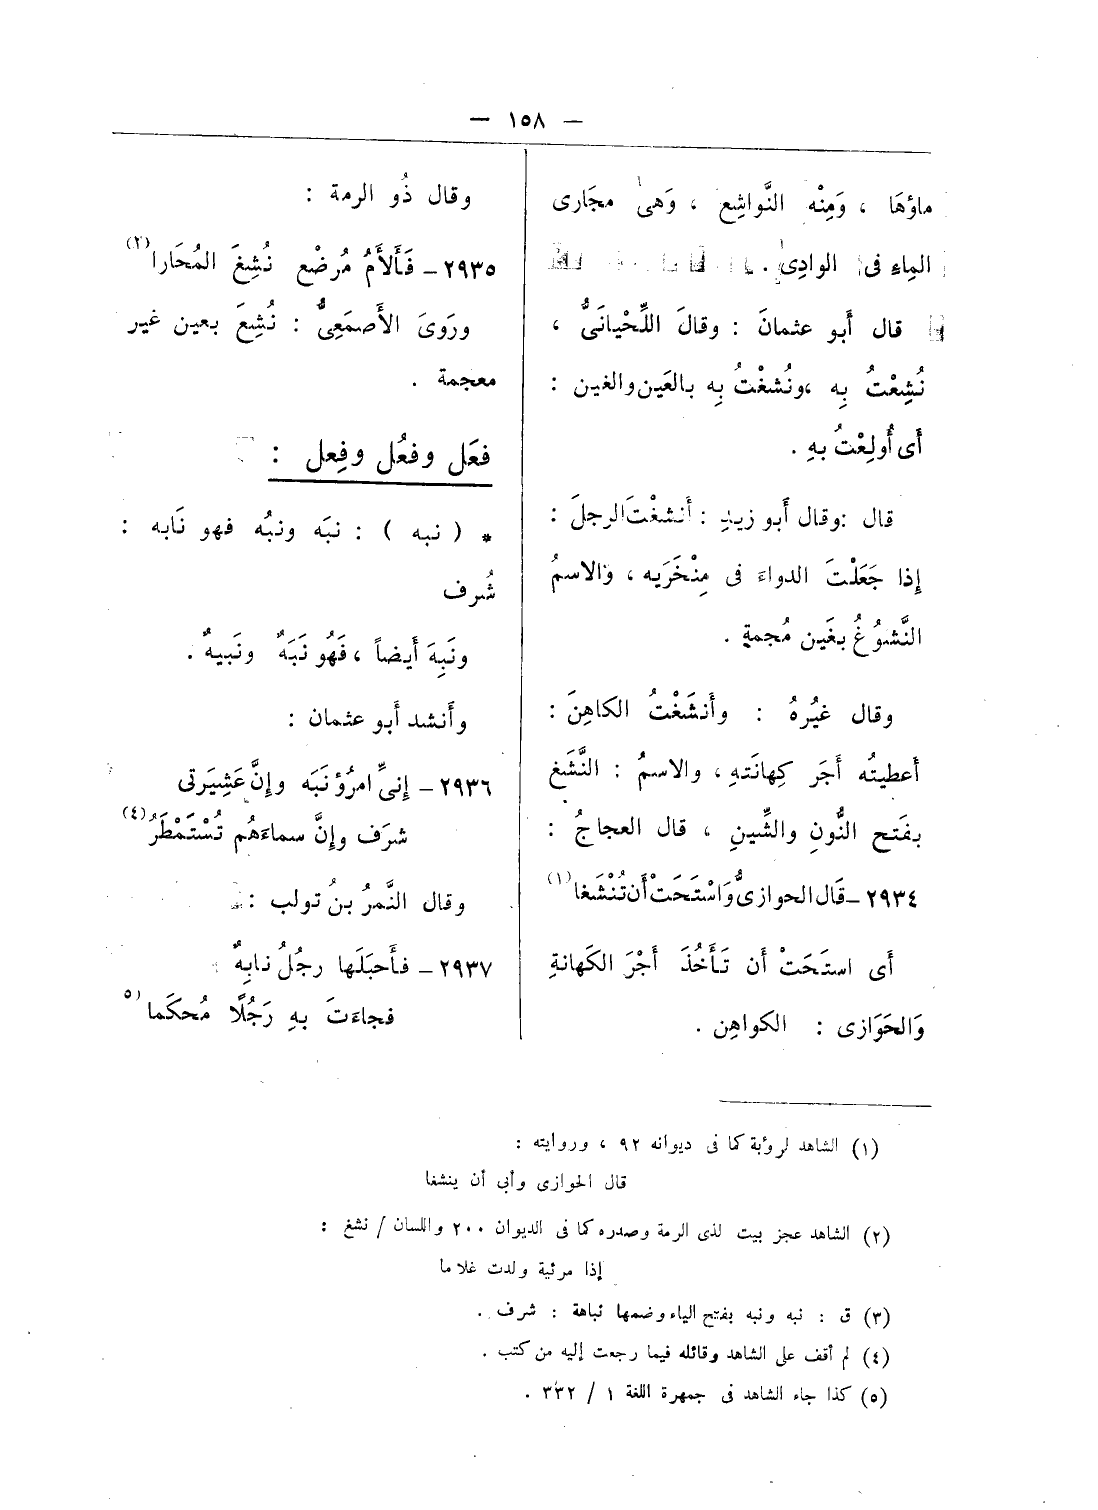 — ١٥٨ —
ماؤهَا ، وَمِنْه النَّواشِع ، وَهىٰ مجَارى
الماءِ فى الوادِى .
قال أَبو عثمانَ : وقالَ اللِّحْيانىُّ ،
نُشِعْتُ بِه ،ونُشغْتُ بِه بالعَين والغين :
أَى أُولِعْتُ بهِ .
قال :وقال أَبو زيدٍ : أَنشغْتَ الرجلَ :
إِذا جَعَلْتَ الدواءَ فى مِنْخَرَيه ، والاسمُ
النَّشوُغُ بغَين مُجمةٍ .
وقال غيُرهُ : وأَنشَغْتُ الكاهِنَ :
أَعطيتُه أَجَر كِهانَتهِ ، والاسمُ : النَّشَغ
بفَتح النُّونِ والشِّينِ ، قال العجاجُ :
٢٩٣٤ـ قَال الحوازىُّ وَاسْتَحَتْ أَن تُنْشَغا (١)
أَى استَحَتْ أَن تَأْخُذَ أَجْرَ الكَهانةِ
وَالحَوَازى : الكواهِن .
وقال ذُو الرمة :
٢٩٣٥ـ فَأَلأَمُ مُرضْع نُشِغَ المُحَارا (٢)
ورَوىَ الأَصمَعِىُّ : نُشِعَ بعين غير
معجمة .
فعَل وفعُل وفِعل :
* ( نبه ) : نبَه ونبُه فهو نَابه :
شُرف
ونَبِهَ أَيضاً ، فَهُو نَبَهٌ ونَبيهٌ .
وأَنشد أَبو عثمان :
٢٩٣٦ـ إِنىِّ امرُؤ نبَه وإِنَّ عَشِيَرتى
شرَف وإِنَّ سماءَهُم تُسْتَمْطَرُ (٤)
وقال النَّمرُ بنُ تولب :
٢٩٣٧ـ فأَحبَلَها رجُلُ نابِهٌ
فجاءَتَ بهِ رَجُلًا مُحكَما (٥
(١) الشاهد لرؤبة كما فى ديوانه ٩٢ ، وروايته :
قال الحوازى وأبى أن ينشغا
(٢) الشاهد عجز بيت لذى الرمة وصدره كما فى الديوان ٢٠٠ واللسان / نشغ :
إذا مرئية ولدت غلاما
(٣) ق : نبه ونبه بفتح الياء وضمها نباهة : شرف .
(٤) لم أقف على الشاهد وقائله فيما رجعت إليه من كتب .
(٥) كذا جاء الشاهد فى جمهرة اللغة ١ / ٣٣٢ .